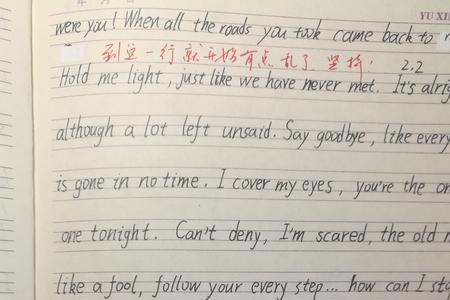 YU XI
were you! When all the roads you took came back to
到这一行就开始有点乱了 坚持! 2.2
Hold me light, just like we have never met. It's alrig
although a lot left unsaid. Say goodbye, like every
is gone in no time. I cover my eyes, you're the on
one tonight. Can't deny, I'm scared, the old m
like a fool, follow your every step... how can I sto